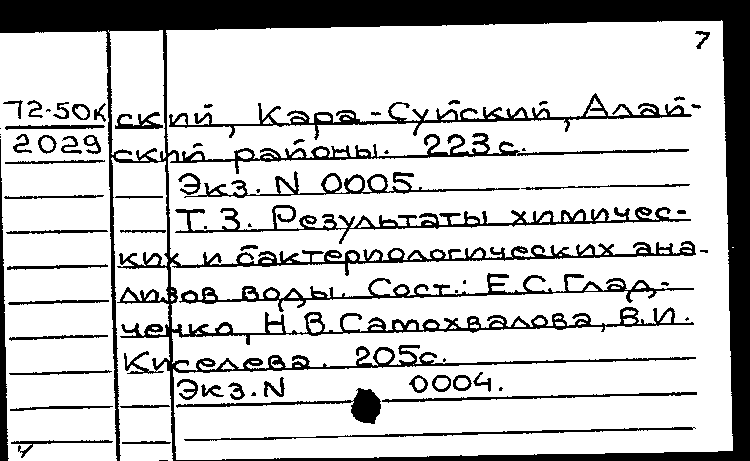 7
72-50к ский, Кара-Суйский, Алай-
2029 ский районы. 223с.
Экз. N 0005.
Т. 3. Результаты химичес-
ких и бактериологических ана-
лизов воды. Сост.: Е.С.Глад-
ченко, Н.В.Самохвалова, В.И.
Киселева. 205с.
Экз.N 0004.